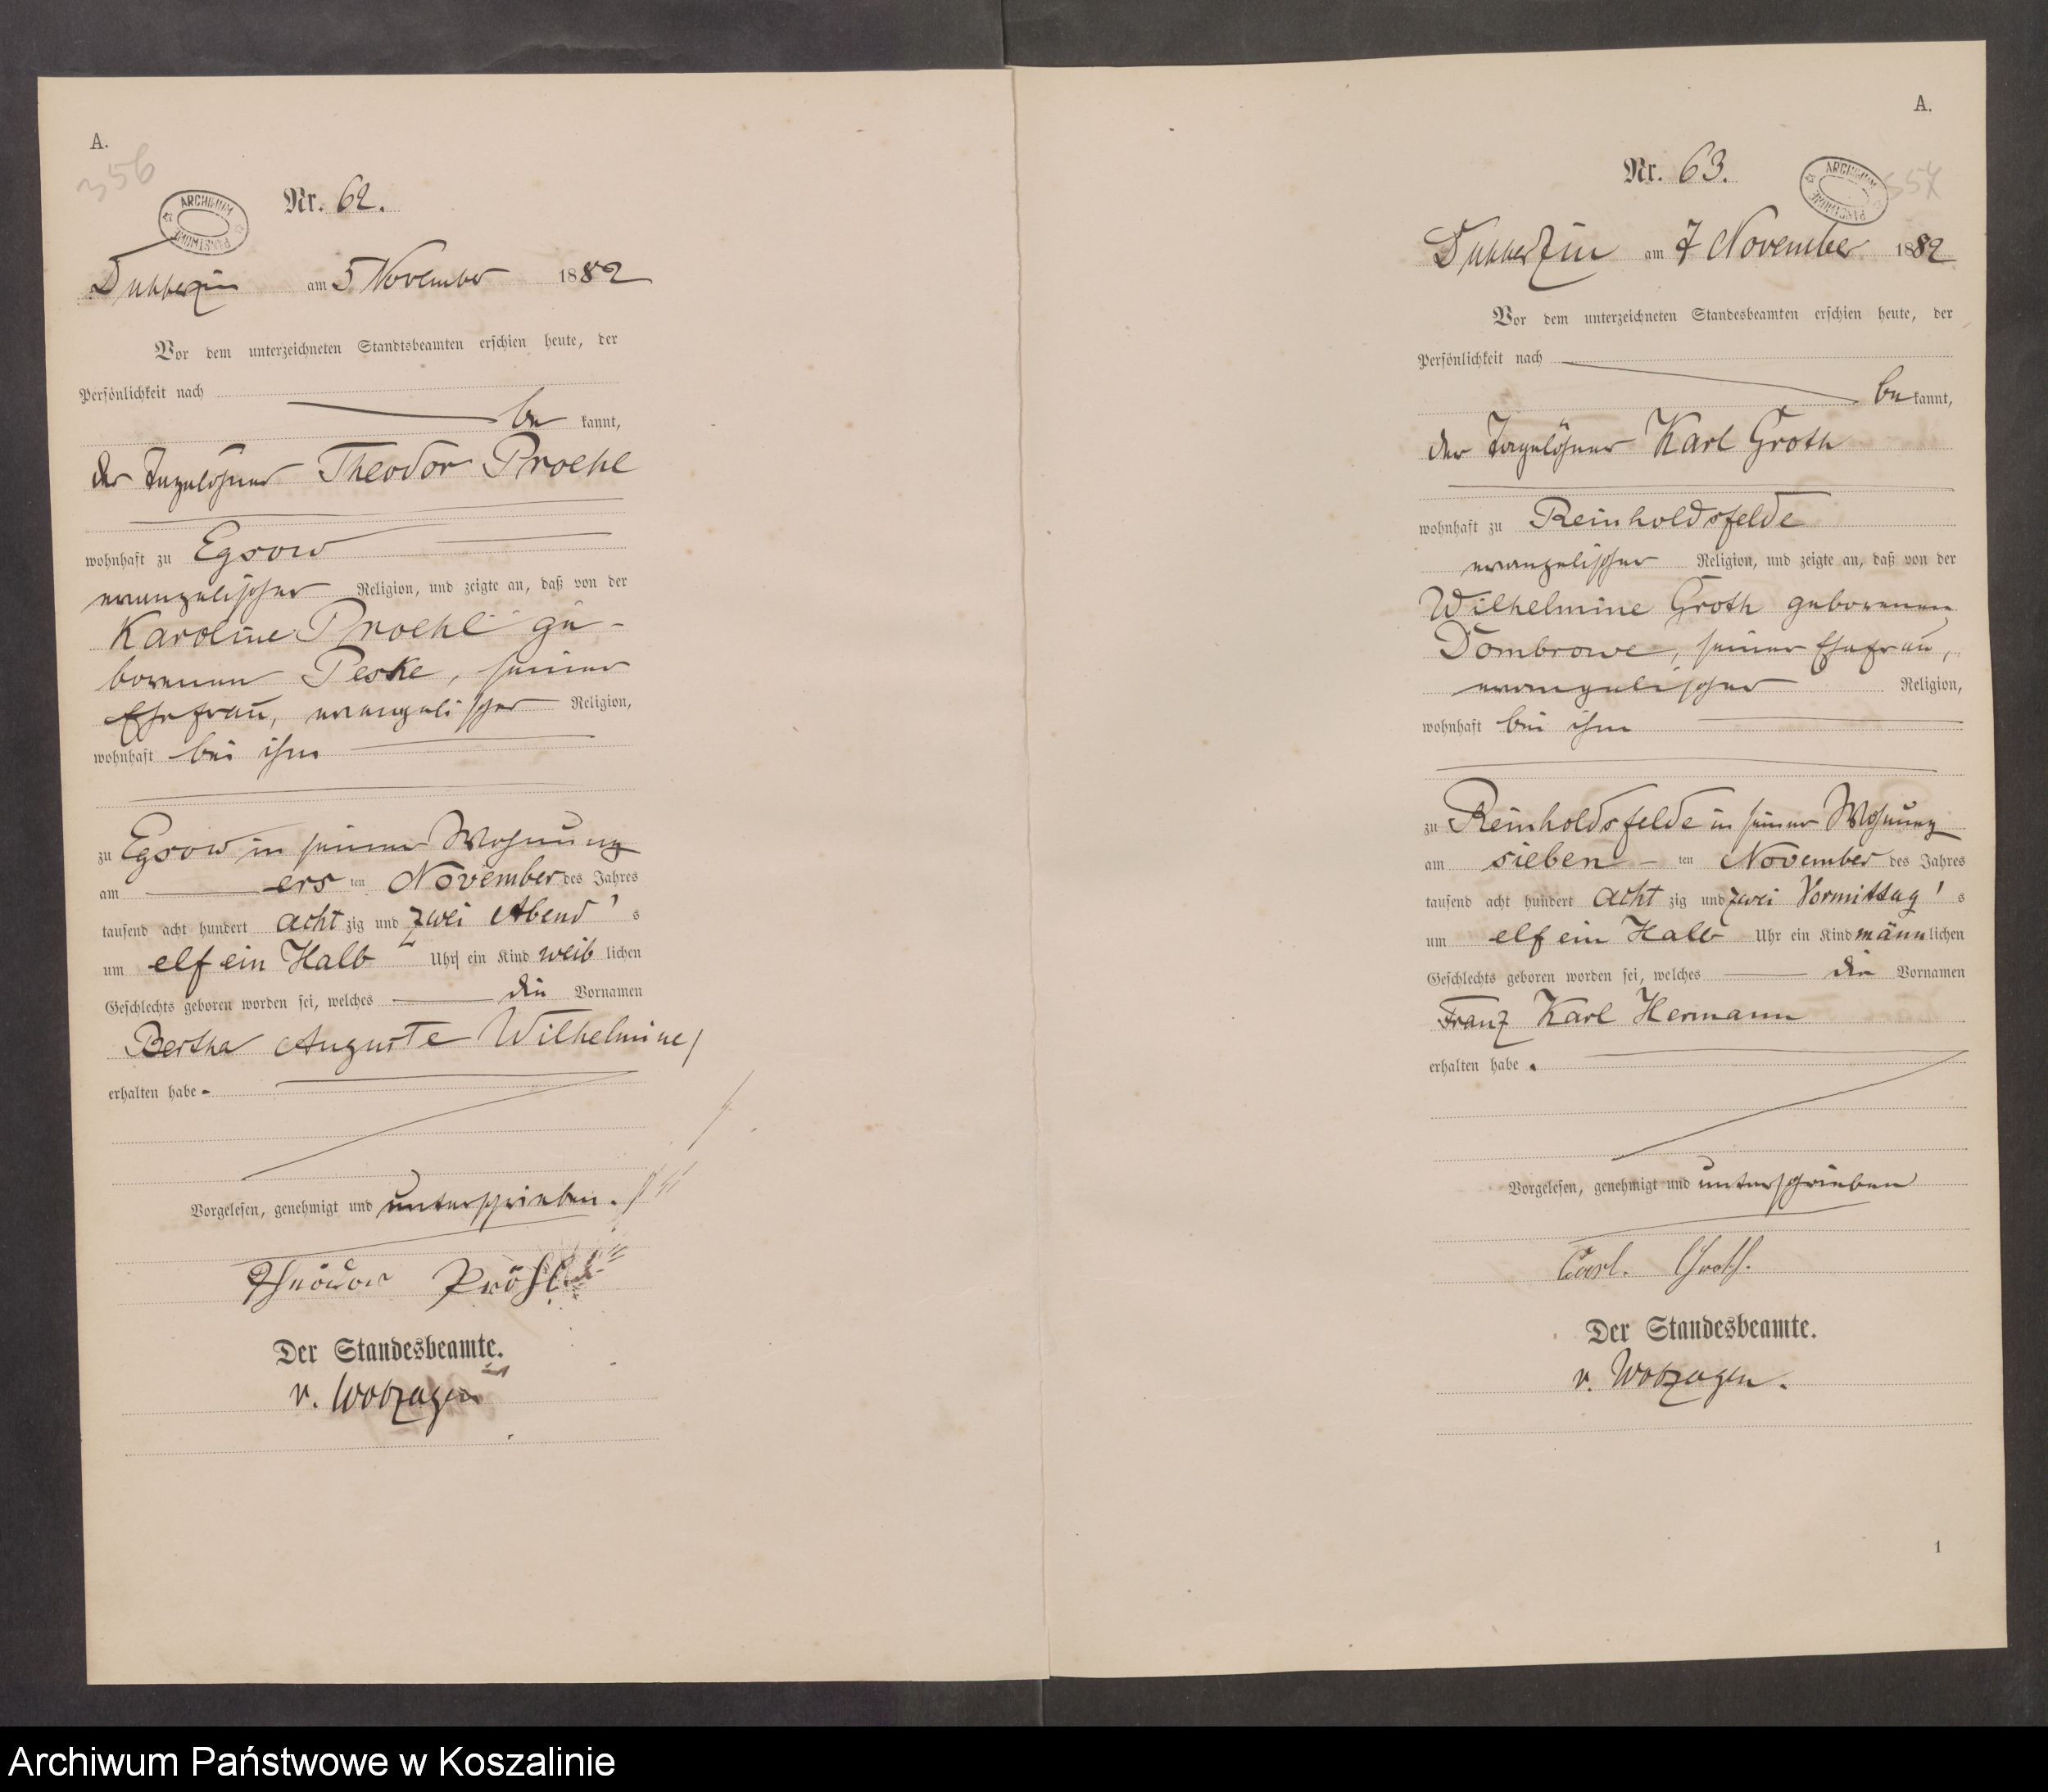 A.
356
ARCHIWUM PAŃSTWOWE
Nr. 62.
Dubberzin am 5 November 1882
Vor dem unterzeichneten Standtsbeamten erschien heute, der
Persönlichkeit nach
be kannt,
der Tagelöhner Theodor Proehl
wohnhaft zu Egsow
evangelischer Religion, und zeigte an, daß von der
Karoline Proehl ge-
borenen Peske, seiner
Ehefrau, evangelischer Religion,
wohnhaft bei ihm
zu Egsow in seiner Wohnung
am ers ten November des Jahres
tausend acht hundert acht zig und zwei Abend's
um elf ein Halb Uhr ein Kind weib lichen
Geschlechts geboren worden sei, welches die Vornamen
Bertha Auguste Wilhelmine
erhalten habe.
Vorgelesen, genehmigt und unterschrieben.
Theodor Pröhl
Der Standesbeamte.
v. Woedtke
A.
357
ARCHIWUM PAŃSTWOWE
Nr. 63.
Dubberzin am 7 November 1882
Vor dem unterzeichneten Standesbeamten erschien heute, der
Persönlichkeit nach
be kannt,
der Tagelöhner Karl Groth
wohnhaft zu Reinholdsfelde
evangelischer Religion, und zeigte an, daß von der
Wilhelmine Groth geborenen
Dombrowe, seiner Ehefrau,
evangelischer Religion,
wohnhaft bei ihm
zu Reinholdsfelde in seiner Wohnung
am sieben ten November des Jahres
tausend acht hundert acht zig und zwei Vormittag's
um elf ein Halb Uhr ein Kind männ lichen
Geschlechts geboren worden sei, welches die Vornamen
Franz Karl Hermann
erhalten habe.
Vorgelesen, genehmigt und unterschrieben
Carl. Groth.
Der Standesbeamte.
v.
1
Archiwum Państwowe w Koszalinie